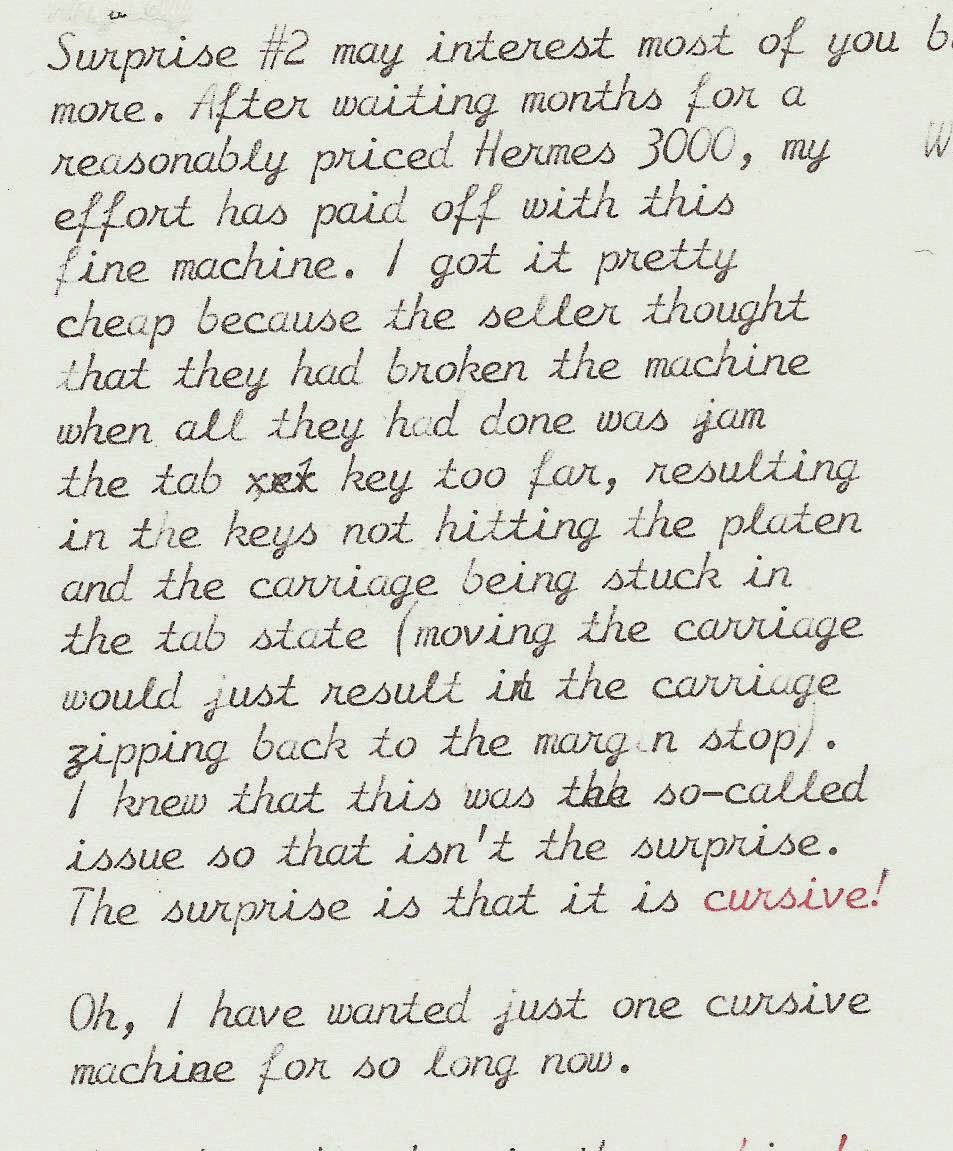 Surprise #2 may interest most of you
more. After waiting months for a
reasonably priced Hermes 3000, my
effort has paid off with this
fine machine. I got it pretty
cheap because the seller thought
that they had broken the machine
when all they had done was jam
the tab key too far, resulting
in the keys not hitting the platen
and the carriage being stuck in
the tab state (moving the carriage
would just result in the carriage
zipping back to the margin stop).
I knew that this was the so-called
issue so that isn't the surprise.
The surprise is that it is cursive!
Oh, I have wanted just one cursive
machine for so long now.